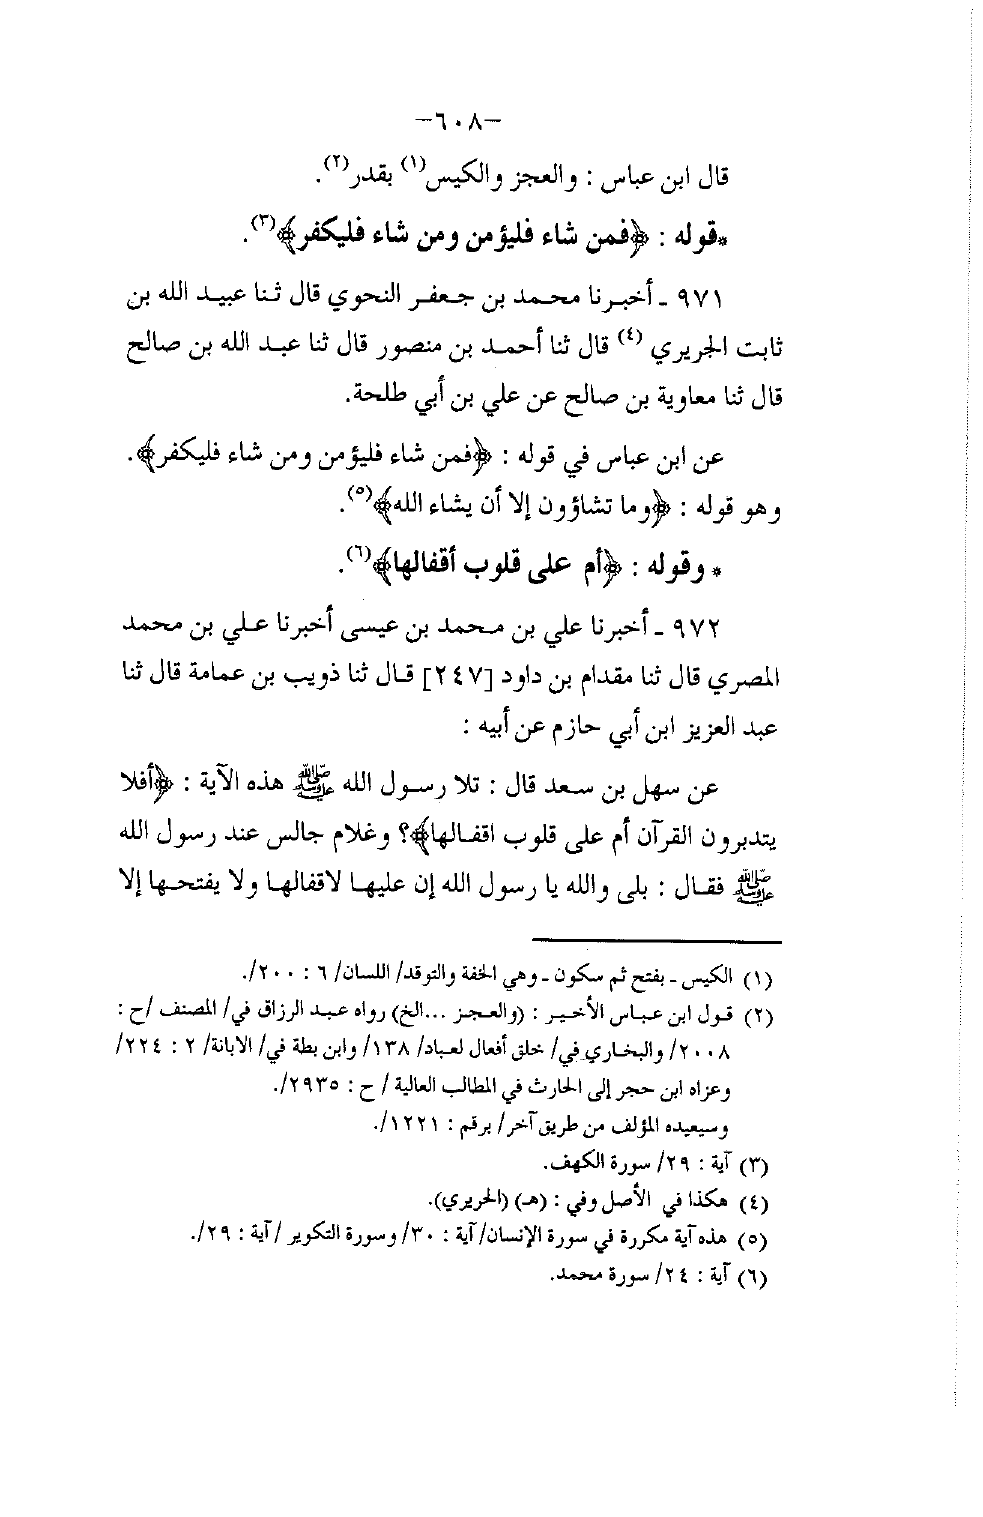 -٦٠٨-
قال ابن عباس : والعجز والكيس(١) بقدر(٢).
*قوله : ﴿فمن شاء فليؤمن ومن شاء فليكفر﴾(٣).
٩٧١ ـ أخبرنا محمد بن جعفر النحوي قال ثنا عبيد الله بن
ثابت الجريري (٤) قال ثنا أحمد بن منصور قال ثنا عبد الله بن صالح
قال ثنا معاوية بن صالح عن علي بن أبي طلحة.
عن ابن عباس في قوله : ﴿فمن شاء فليؤمن ومن شاء فليكفر﴾.
وهو قوله : ﴿وما تشاؤون إلا أن يشاء الله﴾(٥).
* وقوله : ﴿أم على قلوب أقفالها﴾(٦).
٩٧٢ ـ أخبرنا علي بن محمد بن عيسى أخبرنا علي بن محمد
المصري قال ثنا مقدام بن داود [٢٤٧] قال ثنا ذويب بن عمامة قال ثنا
عبد العزيز ابن أبي حازم عن أبيه :
عن سهل بن سعد قال : تلا رسول الله ﷺ هذه الآية : ﴿أفلا
يتدبرون القرآن أم على قلوب اقفالها﴾؟ وغلام جالس عند رسول الله
ﷺ فقال : بلى والله يا رسول الله إن عليها لاقفالها ولا يفتحها إلا
(١) الكيس ـ بفتح ثم سكون ـ وهي الخفة والتوقد/ اللسان/ ٦ : ٢٠٠/.
(٢) قول ابن عباس الأخير : (والعجز ...الخ) رواه عبد الرزاق في/ المصنف /ح :
٢٠٠٨/ والبخاري في/ خلق أفعال لعباد/ ١٣٨/ وابن بطة في/ الابانة/ ٢ : ٢٢٤/
وعزاه ابن حجر إلى الحارث في المطالب العالية / ح : ٢٩٣٥/.
وسيعيده المؤلف من طريق آخر/ برقم : ١٢٢١/.
(٣) آية : ٢٩/ سورة الكهف.
(٤) هكذا في الأصل وفي : (هـ) (الحريري).
(٥) هذه آية مكررة في سورة الإنسان/ آية : ٣٠/ وسورة التكوير / آية : ٢٩/.
(٦) آية : ٢٤/ سورة محمد.